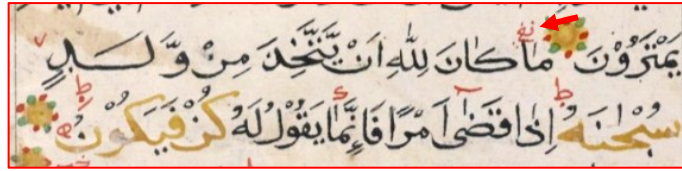 يَمْتَرُوْنَ مَا كَانَ لِلّٰهِ اَنْ يَّتَّخِذَ مِنْ وَّلَدٍ
سُبْحٰنَهٗ اِذَا قَضٰٓى اَمْرًا فَاِنَّمَا يَقُوْلُ لَهٗ كُنْ فَيَكُوْنُ